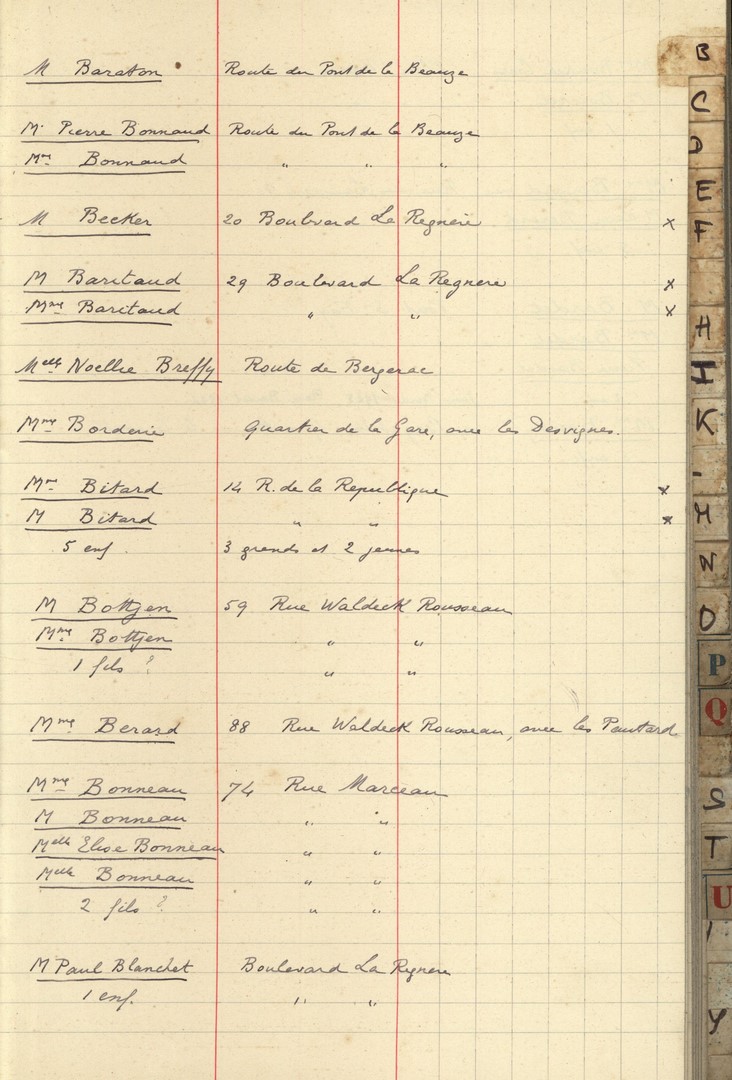 M Baraton Route du Pont de la Beauze
Mr Pierre Bonnaud Route du Pont de la Beauze
Mme Bonnaud " " "
M Becker 20 Boulvard La Regnere x
M Baritaud 29 Boulevard La Regnere x
Mme Baritaud " " x
Melle Noellie Breffy Route de Bergerac
Mme Borderie Quartier de la Gare, avec les Desvignes.
Mme Bitard 14 R. de la Republique x
M Bitard " " x
5 enf. 3 grands et 2 jeunes
M Bottjen 59 Rue Waldeck Rousseau
Mme Bottjen " "
1 fils ? " "
Mme Berard 88 Rue Waldeck Rousseau, avec les Pautard
Mme Bonneau 74 Rue Marceau
M Bonneau " "
Melle Elise Bonneau " "
Melle Bonneau " "
2 fils ? " "
M Paul Blanchet Boulevard La Regnere
1 enf. " "
B
C
D
E
F
H
I
K
M
N
O
P
Q
S
T
U
Y